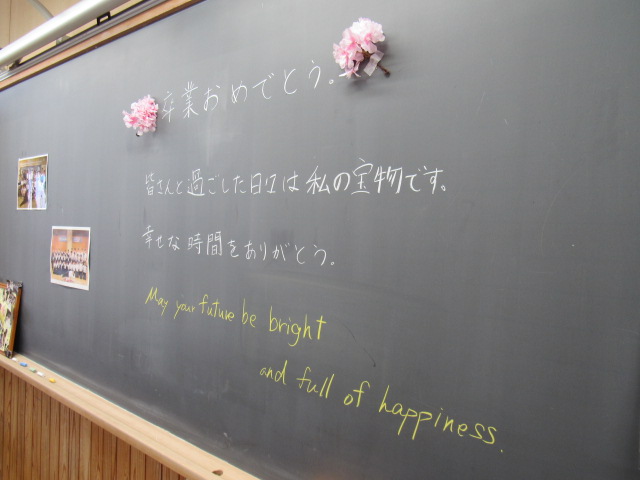 卒業おめでとう。
皆さんと過ごした日々は私の宝物です。
幸せな時間をありがとう。
May your future be bright
and full of happiness.